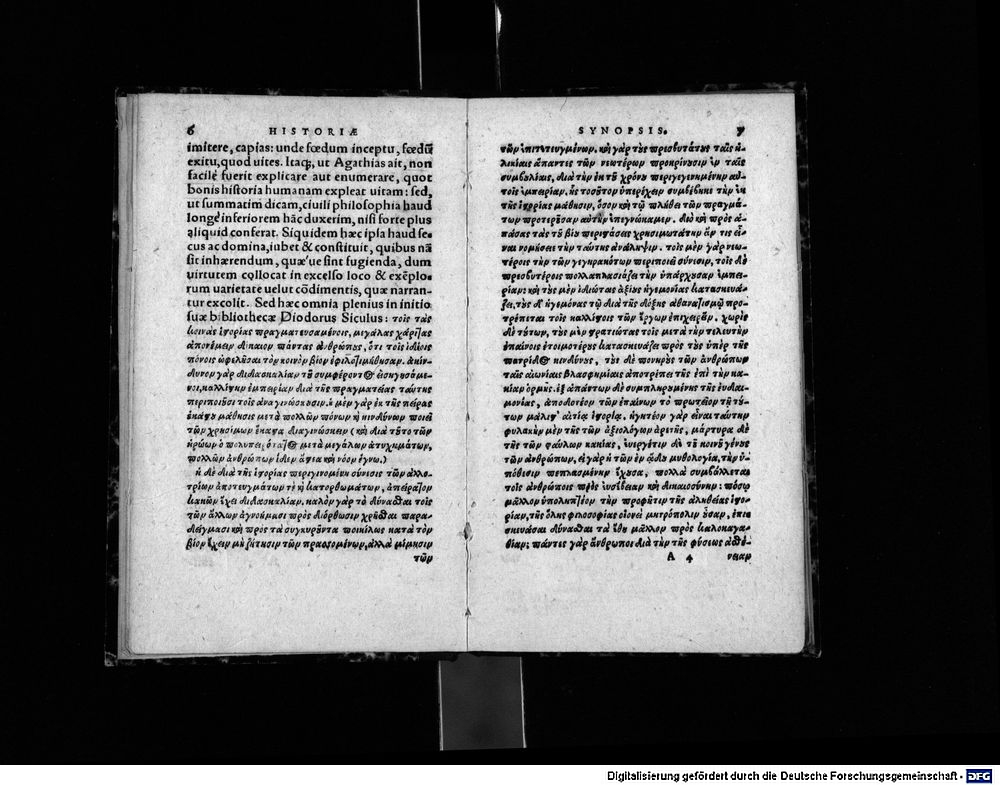 6 HISTORIÆ
imitere, capias: unde fœdum inceptu, fœdũ
exitu, quod uites. Itaq;, ut Agathias ait, non
facile fuerit explicare aut enumerare, quot
bonis historia humanam expleat uitam: sed,
ut summatim dicam, ciuili philosophia haud
longè inferiorem hāc duxerim, nisi forte plus
aliquid conferat. Siquidem hæc ipsa haud se-
cus ac domina, iubet & constituit, quibus nā
sit inhærendum, quæ'ue sint fugienda, dum
uirtutem collocat in excelso loco & exēplo-
rum uarietate uelut cōdimentis, quæ narran-
tur excolit. Sed hæc omnia plenius in initio
suæ bibliothecæ Diodorus Siculus: τοῖς τὰς
κοινὰς ἱστορίας πραγματευσαμένοις, μεγάλας χάριτας
ἀπονέμειν δίκαιον πάντας ἀνθρώπους, ὅτι τοῖς ἰδίοις
πόνοις ὠφελῆσαι τὸν κοινὸν βίον ἐφιλοτιμήθησαν. ἀκίν-
δυνον γὰρ διδασκαλίαν τοῦ συμφέροντος εἰσηγησάμε-
νοι, καλλίστην ἐμπειρίαν διὰ τῆς πραγματείας ταύτης
περιποιοῦσι τοῖς ἀναγινώσκουσιν. ἡ μὲν γὰρ ἐκ τῆς πείρας
ἑκάστου μάθησις μετὰ πολλῶν πόνων καὶ κινδύνων ποιεῖ
τῶν χρησίμων ἕκαστα διαγινώσκειν (καὶ διὰ τοῦτο τῶν
ἡρώων ὁ πολυπειρότατος μετὰ μεγάλων ἀτυχημάτων,
πολλῶν ἀνθρώπων ἴδεν ἄστεα καὶ νόον ἔγνω.)
ἡ δὲ διὰ τῆς ἱστορίας περιγινομένη σύνεσις τῶν ἀλλο-
τρίων ἀποτευγμάτων τε καὶ κατορθωμάτων, ἀπείρατον
κακῶν ἔχει διδασκαλίαν. καλὸν γὰρ τὸ δύνασθαι τοῖς
τῶν ἄλλων ἀγνοήμασι πρὸς διόρθωσιν χρῆσθαι παρα-
δείγμασι καὶ πρὸς τὰ συγκυροῦντα ποικίλως κατὰ τὸν
βίον ἔχειν μὴ ζήτησιν τῶν πρασσομένων, ἀλλὰ μίμησιν
τῶν
SYNOPSIS. 7
τῶν ἐπιτετευγμένων. καὶ γὰρ τοὺς πρεσβυτάτους ταῖς ἡ-
λικίαις ἅπαντες τῶν νεωτέρων προκρίνουσιν ἐν ταῖς
συμβουλίαις, διὰ τὴν ἐκ τοῦ χρόνου περιγεγενημένην αὐ-
τοῖς ἐμπειρίαν. ἧς τοσοῦτον ὑπερέχειν συμβέβηκε τὴν ἐκ
τῆς ἱστορίας μάθησιν, ὅσον καὶ τῷ πλήθει τῶν πραγμά-
των προτεροῦσαν αὐτὴν ἐπεγνώκαμεν. Διὸ καὶ πρὸς ἁ-
πάσας τὰς τοῦ βίου περιστάσεις χρησιμωτάτην ἄν τις εἶ-
ναι νομίσειε τὴν ταύτης ἀνάληψιν. τοῖς μὲν γὰρ νεω-
τέροις τὴν τῶν γεγηρακότων περιποιεῖ σύνεσιν, τοῖς δὲ
πρεσβυτέροις πολλαπλασιάζει τὴν ὑπάρχουσαν ἐμπει-
ρίαν: καὶ τοὺς μὲν ἰδιώτας ἀξίους ἡγεμονίας κατασκευά-
ζει, τοὺς δ' ἡγεμόνας τῷ διὰ τῆς δόξης ἀθανατισμῷ προ-
τρέπεται τοῖς καλλίστοις τῶν ἔργων ἐπιχειρεῖν. χωρὶς
δὲ τούτων, τοὺς μὲν στρατιώτας τοῖς μετὰ τὴν τελευτὴν
ἐπαίνοις ἑτοιμοτέρους κατασκευάζει πρὸς τοὺς ὑπὲρ τῆς
πατρίδος κινδύνους, τοὺς δὲ πονηροὺς τῶν ἀνθρώπων
ταῖς αἰωνίαις βλασφημίαις ἀποτρέπει τῆς ἐπὶ τὴν κα-
κίαν ὁρμῆς. ἐξ ἁπάντων δὲ συμπληρουμένης τῆς εὐδαι-
μονίας, ἀποδοτέον τῶν ἐπαίνων τὸ πρωτεῖον τῇ τού-
των μάλιστ' αἰτίᾳ ἱστορίᾳ. ἡγητέον γὰρ εἶναι ταύτην
φυλακὴν μὲν τῆς τῶν ἀξιολόγων ἀρετῆς, μάρτυρα δὲ
τῆς τῶν φαύλων κακίας, εὐεργέτιν δὲ τοῦ κοινοῦ γένους
τῶν ἀνθρώπων. εἰ γὰρ ἡ τῶν ἐν ᾅδου μυθολογία, τὴν ὑ-
πόθεσιν πεπλασμένην ἔχουσα, πολλὰ συμβάλλεται
τοῖς ἀνθρώποις πρὸς εὐσέβειαν καὶ δικαιοσύνην: πόσῳ
μᾶλλον ὑποληπτέον τὴν προφῆτιν τῆς ἀληθείας ἱστο-
ρίαν, τῆς ὅλης φιλοσοφίας οἱονεὶ μητρόπολιν οὖσαν, ἐπι-
σκευάσαι δύνασθαι τὰ ἤθη μᾶλλον πρὸς καλοκαγα-
θίαν; πάντες γὰρ ἄνθρωποι διὰ τὴν τῆς φύσεως ἀσθέ-
A 4 νειαν
Digitalisierung gefördert durch die Deutsche Forschungsgemeinschaft - DFG